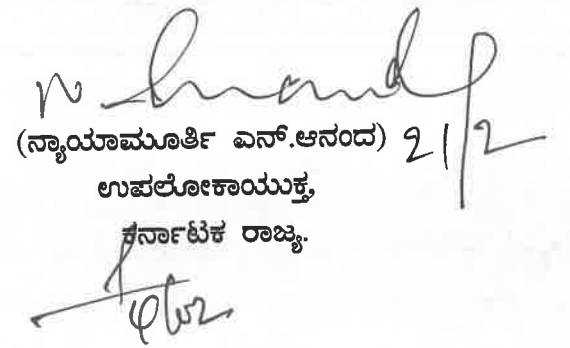 N Anand
(ನ್ಯಾಯಾಮೂರ್ತಿ ಎನ್.ಆನಂದ) 21/2
ಉಪಲೋಕಾಯುಕ್ತ,
ಕರ್ನಾಟಕ ರಾಜ್ಯ.